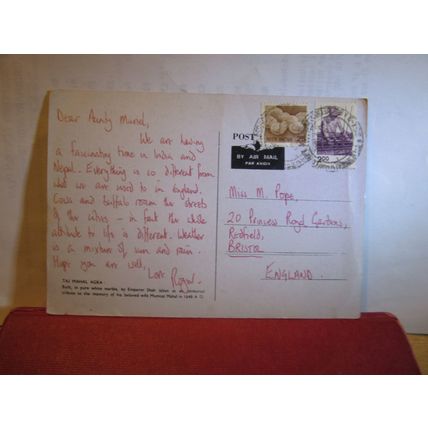 Dear Aunty Muriel,
We are having
a fascinating time in India and
Nepal. Everything is so different from
what we are used to in England.
Cows and buffalo roam the streets
of the cities - in fact the whole
attitude to life is different. Weather
is a mixture of sun and rain.
Hope you are well,
Love
TAJ MAHAL AGRA
Built, in pure white marble, by Emperor Shah Jahan as an immortal
tribute to the memory of his beloved wife Mumtaz Mahal in 1648 A. D.
POST
BY AIR MAIL
PAR AVION
2.00
Miss M. Pope,
20 Princess Royal Gardens,
REDFIELD,
BRISTOL
ENGLAND.